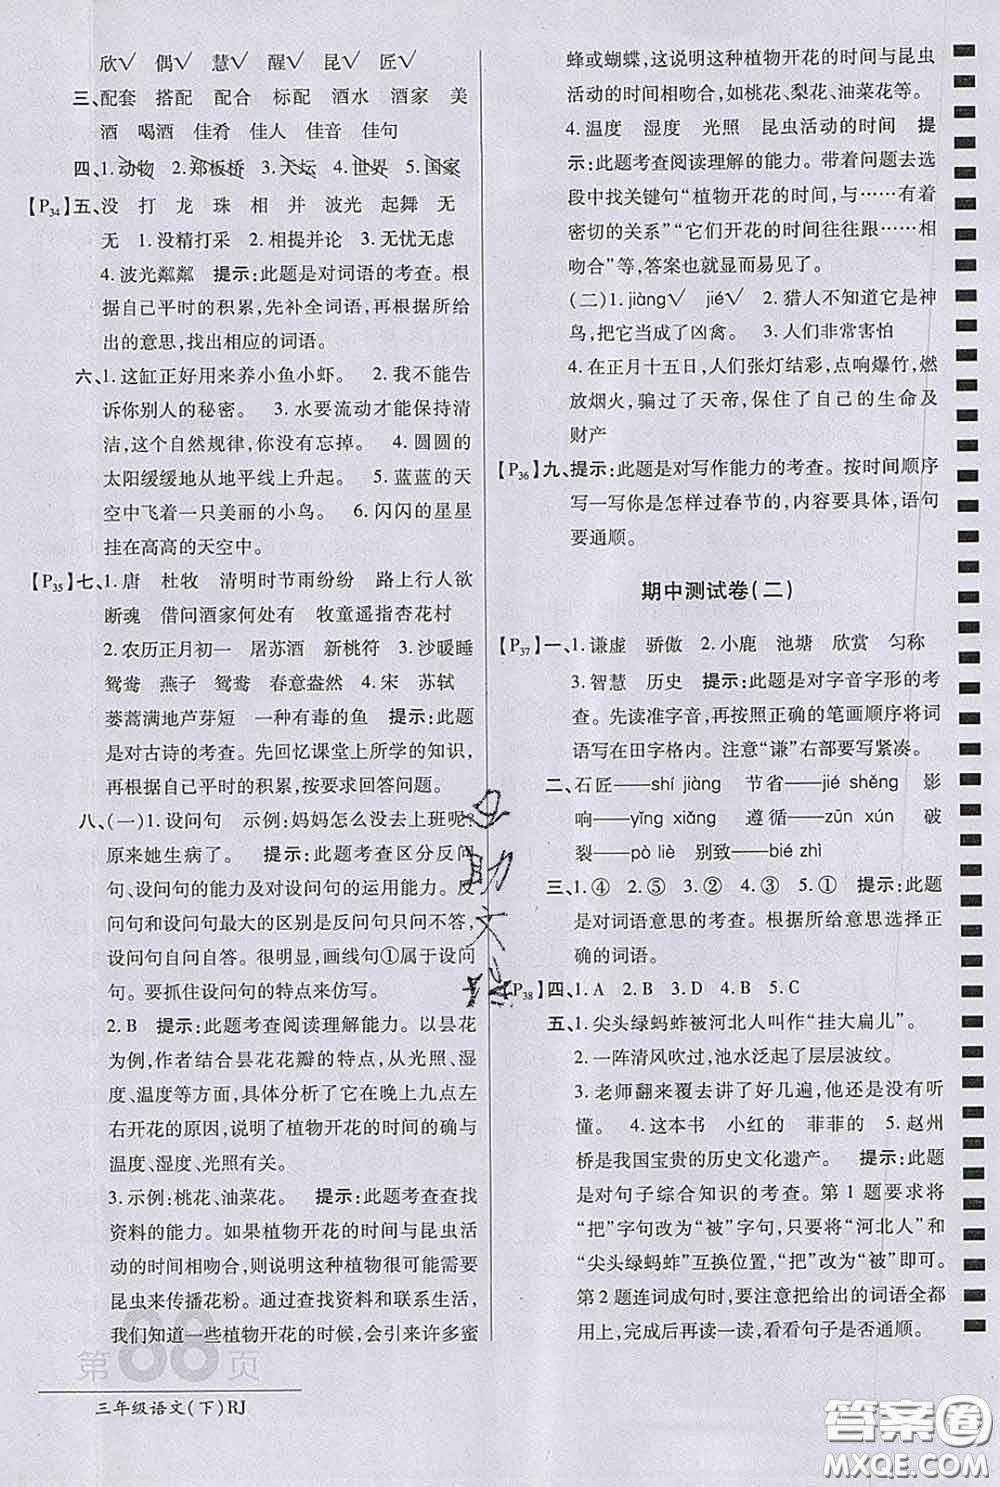 欣√ 偶√ 慧√ 醒√ 昆√ 匠√
三、配套 搭配 配合 标配 酒水 酒家 美
酒 喝酒 佳肴 佳人 佳音 佳句
四、1.动物 2.郑板桥 3.天坛 4.世界 5.国家
【P34】五、没 打 龙 珠 相 并 波光 起舞 无
无 1.没精打采 2.相提并论 3.无忧无虑
4.波光粼粼 提示:此题是对词语的考查。根
据自己平时的积累,先补全词语,再根据所给
出的意思,找出相应的词语。
六、1.这缸正好用来养小鱼小虾。 2.我不能告
诉你别人的秘密。 3.水要流动才能保持清
洁,这个自然规律,你没有忘掉。 4.圆圆的
太阳缓缓地从地平线上升起。 5.蓝蓝的天
空中飞着一只美丽的小鸟。 6.闪闪的星星
挂在高高的天空中。
【P35】七、1.唐 杜牧 清明时节雨纷纷 路上行人欲
断魂 借问酒家何处有 牧童遥指杏花村
2.农历正月初一 屠苏酒 新桃符 3.沙暖睡
鸳鸯 燕子 鸳鸯 春意盎然 4.宋 苏轼
蒌蒿满地芦芽短 一种有毒的鱼 提示:此题
是对古诗的考查。先回忆课堂上所学的知识,
再根据自己平时的积累,按要求回答问题。
八、(一)1.设问句 示例:妈妈怎么没去上班呢?
原来她生病了。 提示:此题考查区分反问
句、设问句的能力及对设问句的运用能力。反
问句和设问句最大的区别是反问句只问不答,
设问句自问自答。很明显,画线句①属于设问
句。要抓住设问句的特点来仿写。
2.B 提示:此题考查阅读理解能力。以昙花
为例,作者结合昙花花瓣的特点,从光照、湿
度、温度等方面,分析了它在晚上九点左
右开花的原因,说明了植物开花的时间的确与
温度、湿度、光照有关。
3.示例:桃花、油菜花。 提示:此题考查查找
资料的能力。如果植物开花的时间与昆虫活
动的时间相吻合,则说明这种植物很可能需要
昆虫来传播花粉。通过查找资料和联系生活,
我们知道一些植物开花的时候,会引来许多蜜
第88页
三年级语文(下)RJ
蜂或蝴蝶,这说明这种植物开花的时间与昆虫
活动的时间相吻合,如桃花、梨花、油菜花等。
4.温度 湿度 光照 昆虫活动的时间 提
示:此题考查阅读理解的能力。带着问题去选
段中找关键句“植物开花的时间,与……有着
密切的关系”“它们开花的时间往往跟……相
吻合”等,答案也就显而易见了。
(二)1.jiàng√ jié√ 2.猎人不知道它是神
鸟,把它当成了凶禽。 3.人们非常害怕
4.在正月十五日,人们张灯结彩,点响爆竹,燃
放烟火,骗过了天帝,保住了自己的生命及
财产
【P36】九、提示:此题是对写作能力的考查。按时间顺序
写一写你是怎样过春节的,内容要具体,语句
要通顺。
期中测试卷(二)
【P37】一、1.谦虚 骄傲 2.小鹿 池塘 欣赏 匀称
3.智慧 历史 提示:此题是对字音字形的考
查。先读准字音,再按照正确的笔画顺序将词
语写在田字格内。注意“谦”右部要写紧凑。
二、石匠——shí jiàng 节省——jié shěng 影
响——yǐng xiǎng 遵循——zūn xún 破
裂——pò liè 别致——bié zhì
三、1.④ 2.⑤ 3.② 4.③ 5.① 提示:此题
是对词语意思的考查。根据所给意思选择正
确的词语。
【P38】四、1.A 2.B 3.D 4.B 5.C
五、1.尖头绿蚂蚱被河北人叫作“挂大扁儿”。
2.一阵清风吹过,池水泛起了层层波纹。
3.老师翻来覆去讲了好几遍,他还是没有听
懂。 4.这本书 小红的 菲菲的 5.赵州
桥是我国宝贵的历史文化遗产。 提示:此题
是对句子综合知识的考查。第1题要求将
“把”字句改为“被”字句,只要将“河北人”和
“尖头绿蚂蚱”互换位置,“把”改为“被”即可。
第2题连词成句时,要注意把给出的词语全都
用上,完成后再读一读,看看句子是否通顺。
答案圈
MXQE.COM